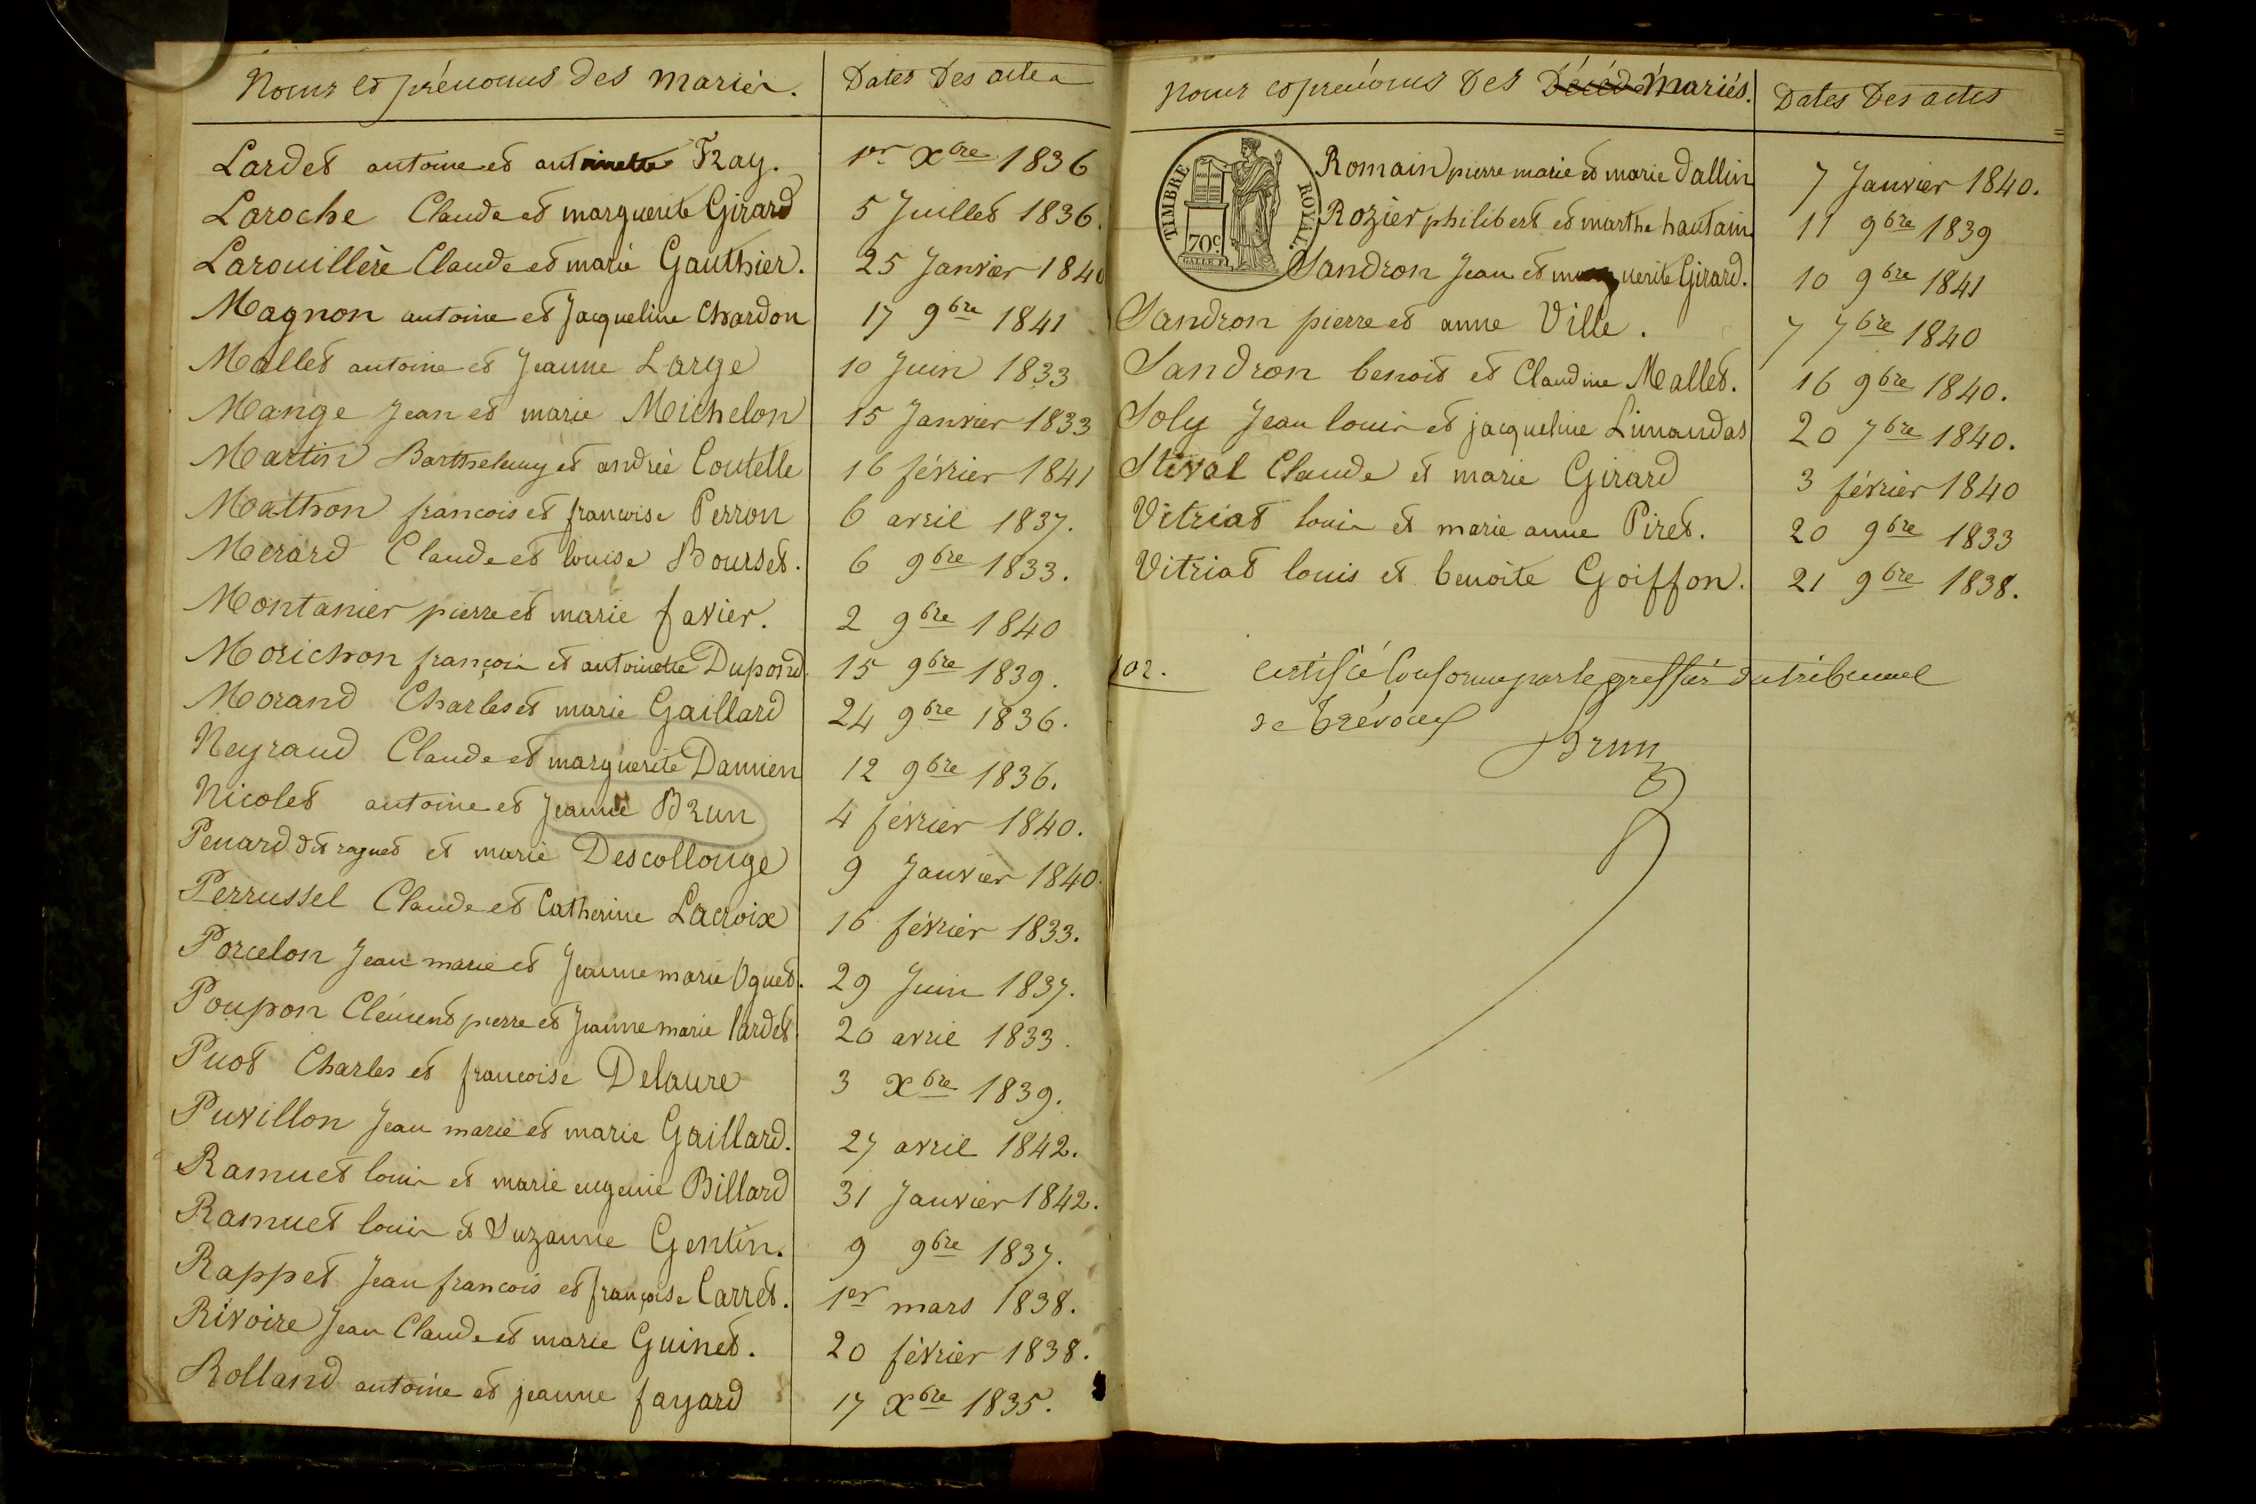 Noms et prénoms des mariés. Dates des actes
Lardet antoine et antoinette Fray. 1er Xbre 1836
Laroche Claude et marguerite Girard 5 Juillet 1836.
Larouillère Claude et marie Gauthier. 25 Janvier 1840
Magnon antoine et Jacqueline Chardon 17 9bre 1841
Mallet antoine et Jeanne Large 10 Juin 1833
Mange Jean et marie Michelon 15 Janvier 1833
Martin Barthelemy et andrée Coutelle 16 février 1841
Mathon francois et francoise Perron 6 avril 1837.
Merard Claude et louise Bourset. 6 9bre 1833.
Montanier pierre et marie favier. 2 9bre 1840
Morichon françois et antoinette Dupond 15 9bre 1839.
Morand Charles et marie Gaillard 24 9bre 1836.
Neyraud Claude et marguerite Damien 12 9bre 1836.
Nicolet antoine et Jeanne Brun 4 février 1840.
Penard dit raguet et marie Descollonge 9 Janvier 1840.
Perrussel Claude et Catherine Lacroix 16 février 1833.
Porcelon Jean marie et Jeanne marie Oguet. 29 Juin 1837.
Poupon Clément pierre et Jeanne marie lardet. 20 avril 1833.
Puot Charles et francoise Delaure 3 Xbre 1839.
Puvillon Jean marie et marie Gaillard. 27 avril 1842.
Ramuet louis et marie eugenie Billard 31 Janvier 1842.
Ramuet louis et Suzanne Gentin. 9 9bre 1837.
Rappet Jean francois et françoise Carret. 1er mars 1838.
Rivoire Jean Claude et marie Guinet. 20 février 1838.
Rolland antoine et jeanne fayard 17 Xbre 1835.
Noms et prénoms des Décédés Mariés. Dates des actes
TIMBRE ROYAL.
70c
Romain pierre marie et marie Dallin 7 Janvier 1840.
Rozier philibert et marthe hautain 11 9bre 1839
Sandron Jean et marguerite Girard. 10 9bre 1841
Sandron pierre et anne Ville. 7 7bre 1840
Sandron benoit et Claudine Mallet. 16 9bre 1840.
Soly Jean louis et jacqueline Limandas 20 7bre 1840.
Stival Claude et marie Girard 3 février 1840
Vitriat louis et marie anne Piret. 20 9bre 1833
Vitriat louis et benoite Goiffon. 21 9bre 1838.
102. Certifié Conforme par le greffier du tribunal
de Trévoux
Brun